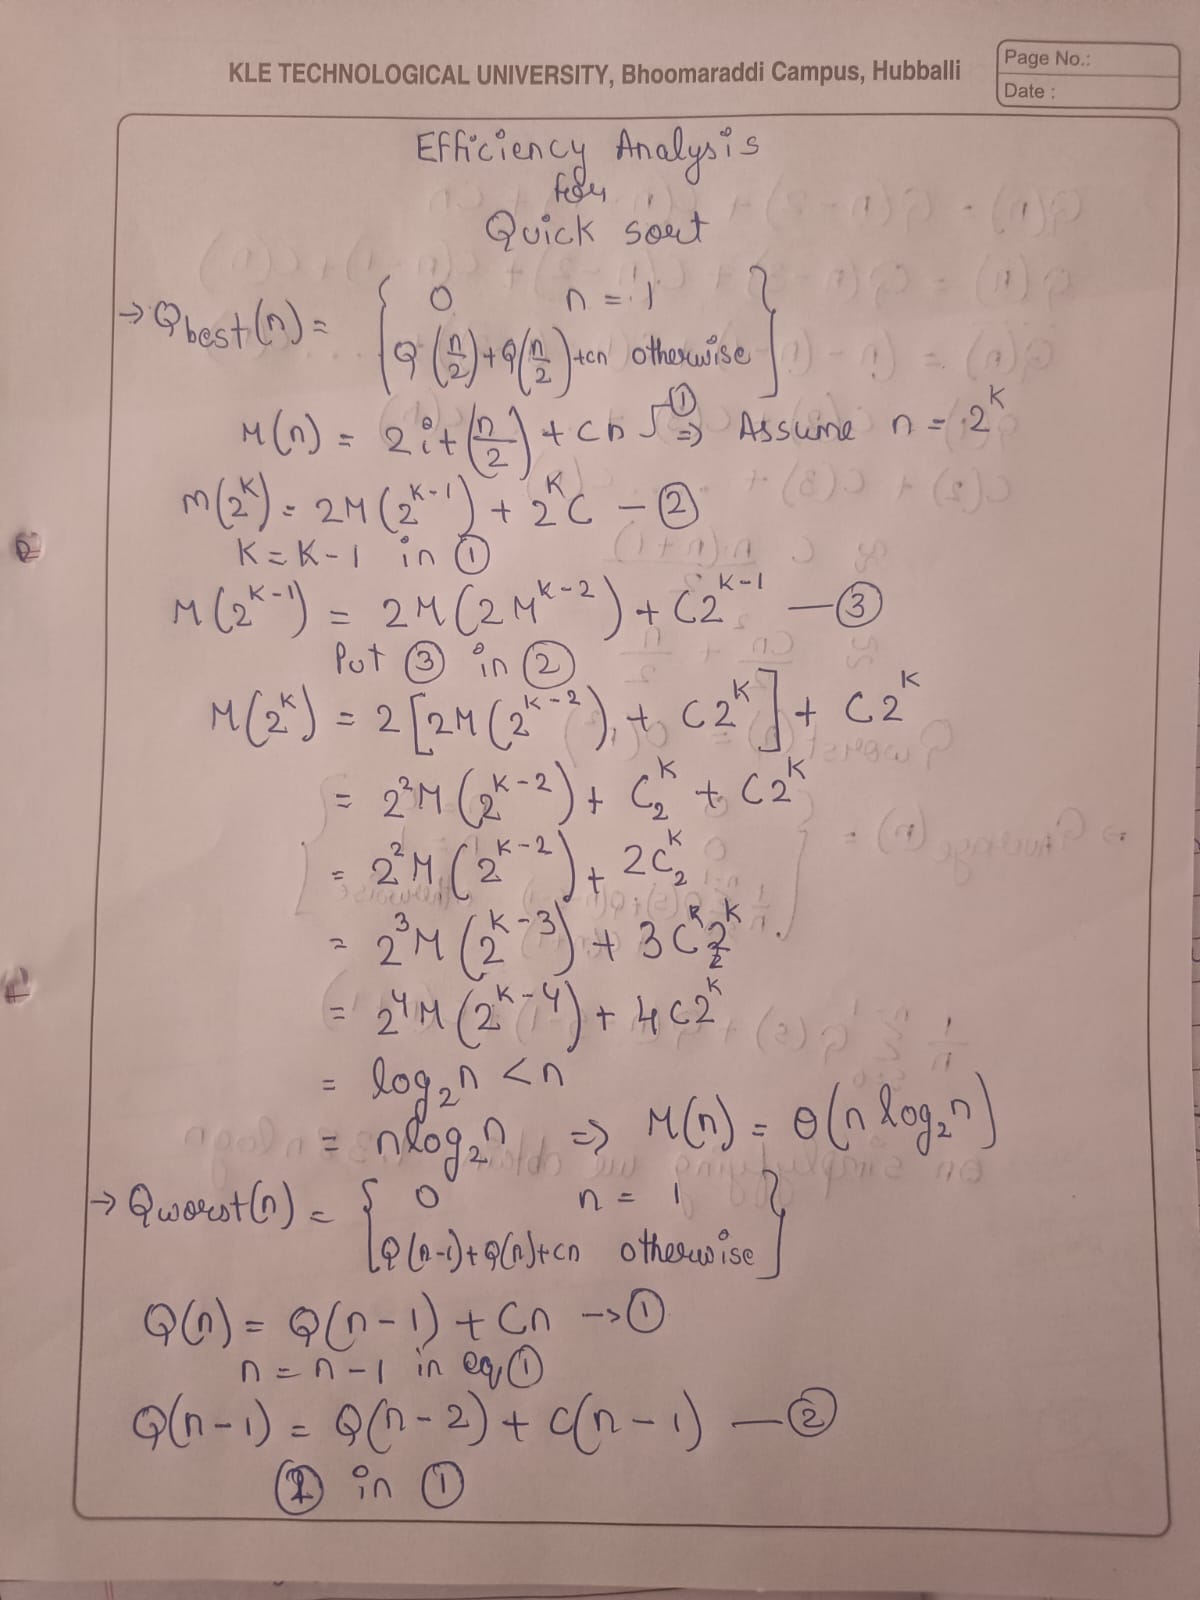 KLE TECHNOLOGICAL UNIVERSITY, Bhoomaraddi Campus, Hubballi
Page No.:
Date :
Efficiency Analysis
for
Quick sort
→ Qbest(n) = { 0 n = 1
Q(n/2)+Q(n/2)+cn otherwise }
M(n) = 2i+(n/2) + cn ① ⇒ Assume n = 2^K
m(2^K) = 2M(2^K-1) + 2^K C — ②
K = K-1 in ①
M(2^K-1) = 2M(2M^K-2) + C2^K-1 — ③
Put ③ in ②
M(2^K) = 2[2M(2^K-2) + C2^K] + C2^K
= 2²M(2^K-2) + C2^K + C2^K
= 2²M(2^K-2) + 2C2^K
= 2³M(2^K-3) + 3C2^K
= 2⁴M(2^K-4) + 4C2^K
= log₂n <n
= nlog₂n ⇒ M(n) = θ(n log₂n)
→ Qworst(n) = { 0 n = 1
Q(n-1)+Q(n)+cn otherwise }
Q(n) = Q(n-1) + Cn → ①
n = n-1 in eq ①
Q(n-1) = Q(n-2) + C(n-1) — ②
② in ①